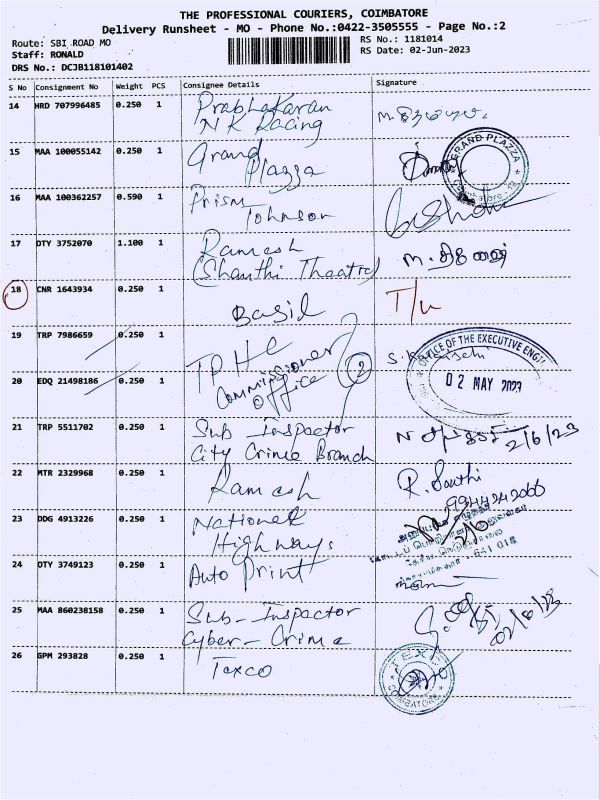 THE PROFESSIONAL COURIERS, COIMBATORE
Delivery Runsheet - MO - Phone No.:0422-3505555 - Page No.:2
Route: SBI ROAD MO
RS No.: 1181014
Staff: RONALD
RS Date: 02-Jun-2023
DRS No.: DCJB118101402
S No Consignment No Weight PCS Consignee Details Signature
14 HRD 707996485 0.250 1 Prabhakaran
NK Racing
15 MAA 100055142 0.250 1 Grand
Plazza
GRAND PLAZZA
16 MAA 100362257 0.590 1 Prism
Johnson
17 OTY 3752070 1.100 1 Ramesh
(Shanthi Theatre)
18 CNR 1643934 0.250 1 Basil T/u
19 TRP 7986659 0.250 1 TP HC
OFFICE OF THE EXECUTIVE ENGI
20 EDQ 21498186 0.250 1 Commissioner
office
2
02 MAY 2023
21 TRP 5511702 0.250 1 Sub Inspector
City Crime Branch
2/6/23
22 MTR 2329968 0.250 1 Ramesh R.
9944242066
23 DDG 4913226 0.250 1 National
Highways
641 018
24 OTY 3749123 0.250 1 Auto Print
25 MAA 860238158 0.250 1 Sub-Inspector
Cyber-Crime
26 GPM 293828 0.250 1 Texco
TEXCO
COIMBATORE